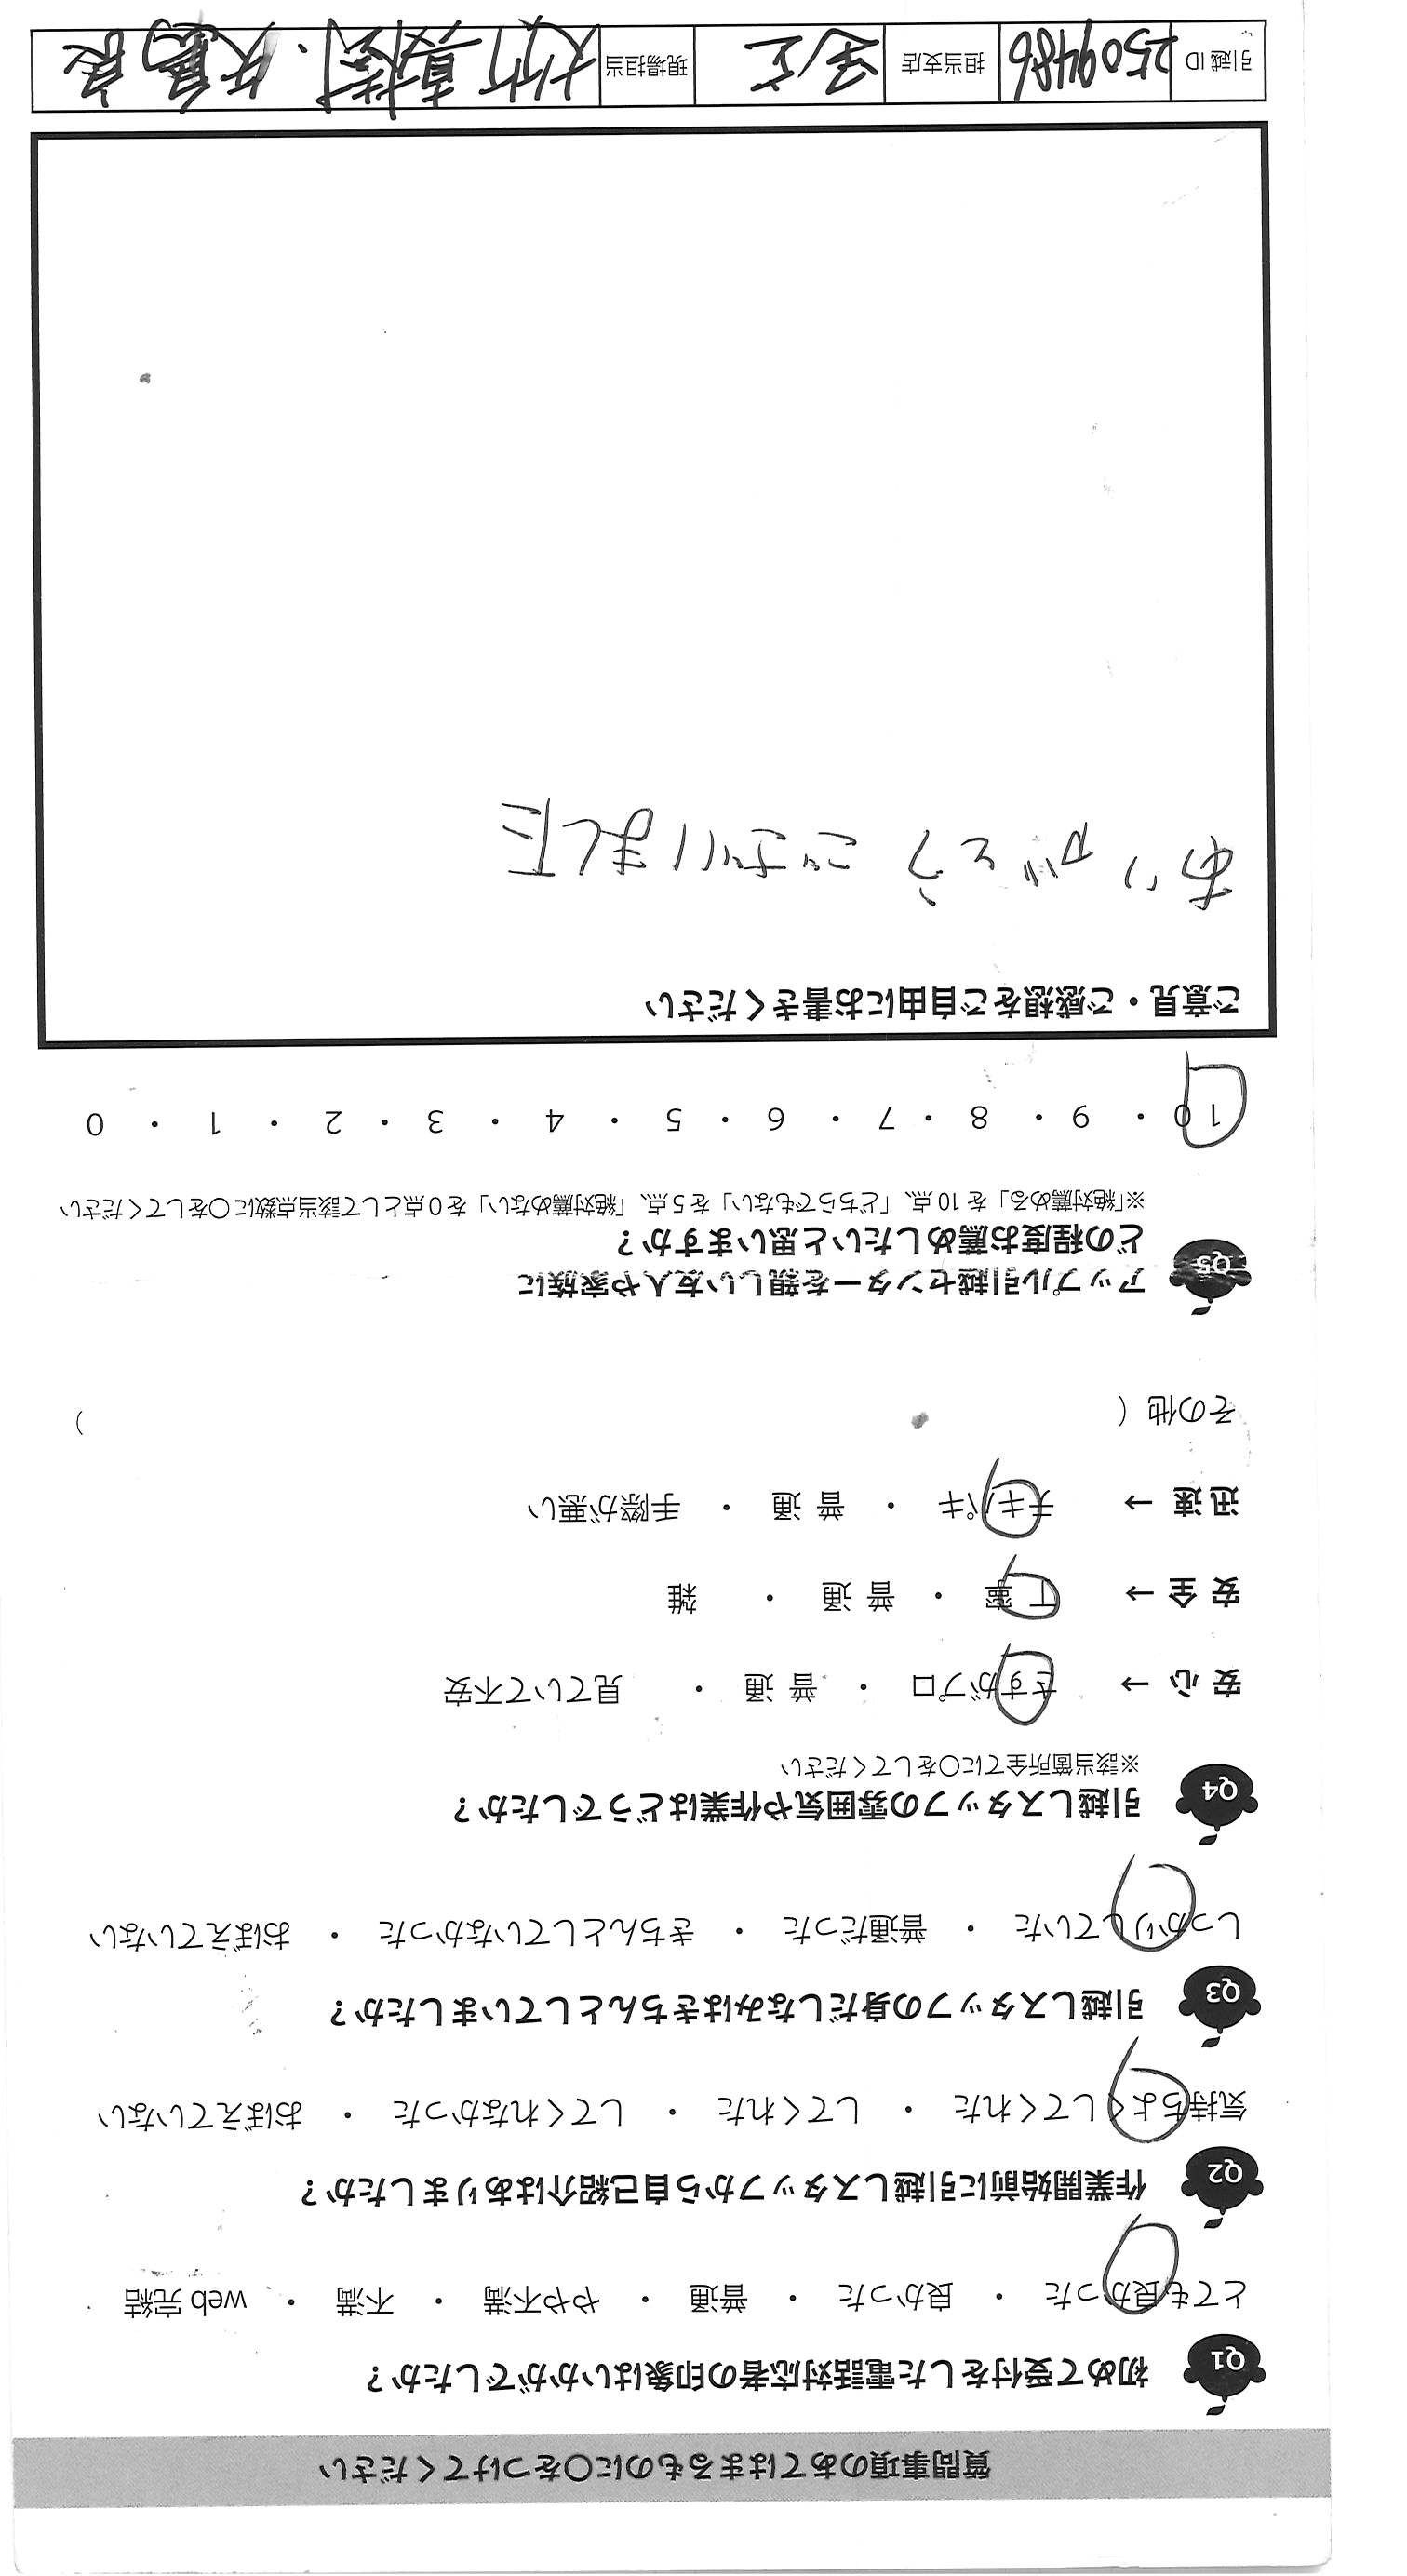 質問事項のあてはまるものに〇をつけてください
Q1 初めて受付をした電話対応者の印象はいかがでしたか？
とても良かった ・ 良かった ・ 普通 ・ やや不満 ・ 不満 ・ web完結
Q2 作業開始前に引越しスタッフから自己紹介はありましたか？
気持ちよくしてくれた ・ してくれた ・ してくれなかった ・ おぼえていない
Q3 引越しスタッフの身だしなみはきちんとしていましたか？
しっかりしていた ・ 普通だった ・ きちんとしていなかった ・ おぼえていない
Q4 引越しスタッフの雰囲気や作業はどうでしたか？
※該当箇所全てに〇をしてください
安心→ さすがプロ ・ 普通 ・ 見ていて不安
安全→ 丁寧 ・ 普通 ・ 雑
迅速→ テキパキ ・ 普通 ・ 手際が悪い
その他（ ）
Q5 アップル引越センターを親しい友人や家族に
どの程度お薦めしたいと思いますか？
※「絶対薦める」を10点、「どちらでもない」を5点、「絶対薦めない」を0点として該当点数に〇をしてください
10 ・ 9 ・ 8 ・ 7 ・ 6 ・ 5 ・ 4 ・ 3 ・ 2 ・ 1 ・ 0
ご意見・ご感想をご自由にお書きください
ありがとうございました
引越ID 2509486 担当支店 現場担当 大竹